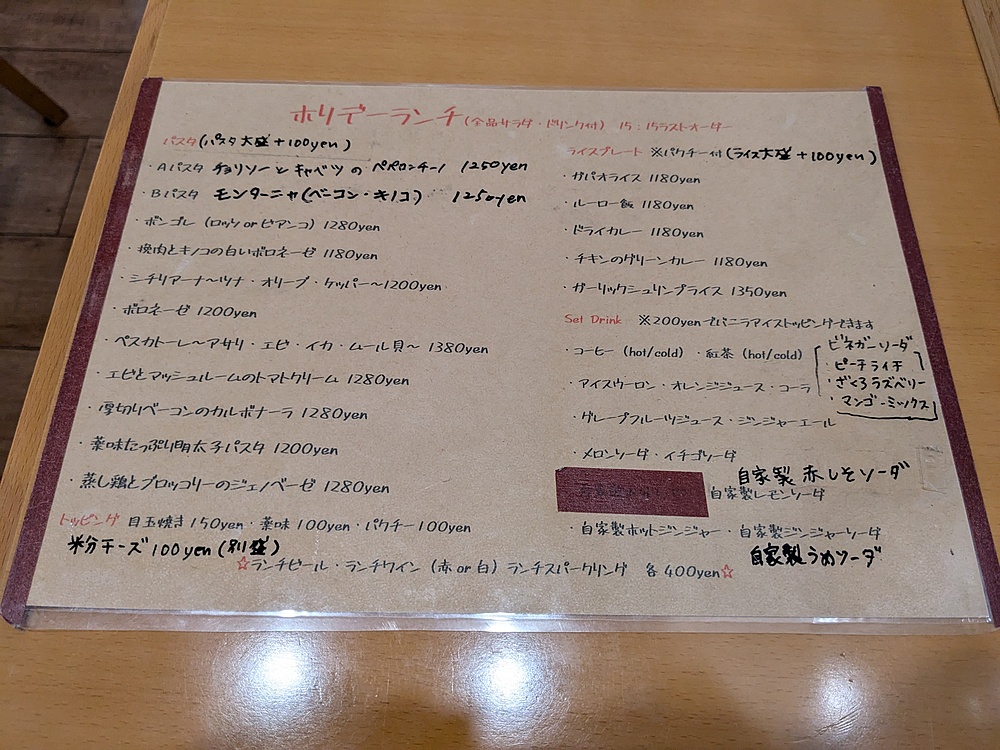 ホリデーランチ(全品サラダ・ドリンク付) 15:15ラストオーダー
パスタ(パスタ大盛+100yen)
・Aパスタ チョリソーとキャベツのペペロンチーノ 1250yen
・Bパスタ モンターニャ(ベーコン・キノコ) 1250yen
・ボンゴレ (ロッソorビアンコ) 1280yen
・挽肉とキノコの白いボロネーゼ 1180yen
・シチリアーナ〜ツナ・オリーブ・ケッパー〜1200yen
・ボロネーゼ 1200yen
・ペスカトーレ〜アサリ・エビ・イカ・ムール貝〜 1380yen
・エビとマッシュルームのトマトクリーム 1280yen
・厚切りベーコンのカルボナーラ 1280yen
・薬味たっぷり明太子パスタ 1200yen
・蒸し鶏とブロッコリーのジェノベーゼ 1280yen
トッピング 目玉焼き150yen・薬味100yen・パクチー100yen
粉チーズ100yen(別盛)
ライスプレート ※パクチー付(ライス大盛+100yen)
・ガパオライス 1180yen
・ルーロー飯 1180yen
・ドライカレー 1180yen
・チキンのグリーンカレー 1180yen
・ガーリックシュリンプライス 1350yen
Set Drink ※200yenでバニラアイストッピングできます
・コーヒー (hot/cold) ・紅茶 (hot/cold)
・アイスウーロン・オレンジジュース・コーラ
ビネガーソーダ
・ピーチライチ
・ざくろラズベリー
・マンゴーミックス
・グレープフルーツジュース・ジンジャーエール
・メロンソーダ・イチゴソーダ
自家製 赤しそソーダ
自家製レモンソーダ
・自家製ホットジンジャー・自家製ジンジャーソーダ
自家製うめソーダ
☆ランチビール・ランチワイン (赤or白) ランチスパークリング 各400yen☆